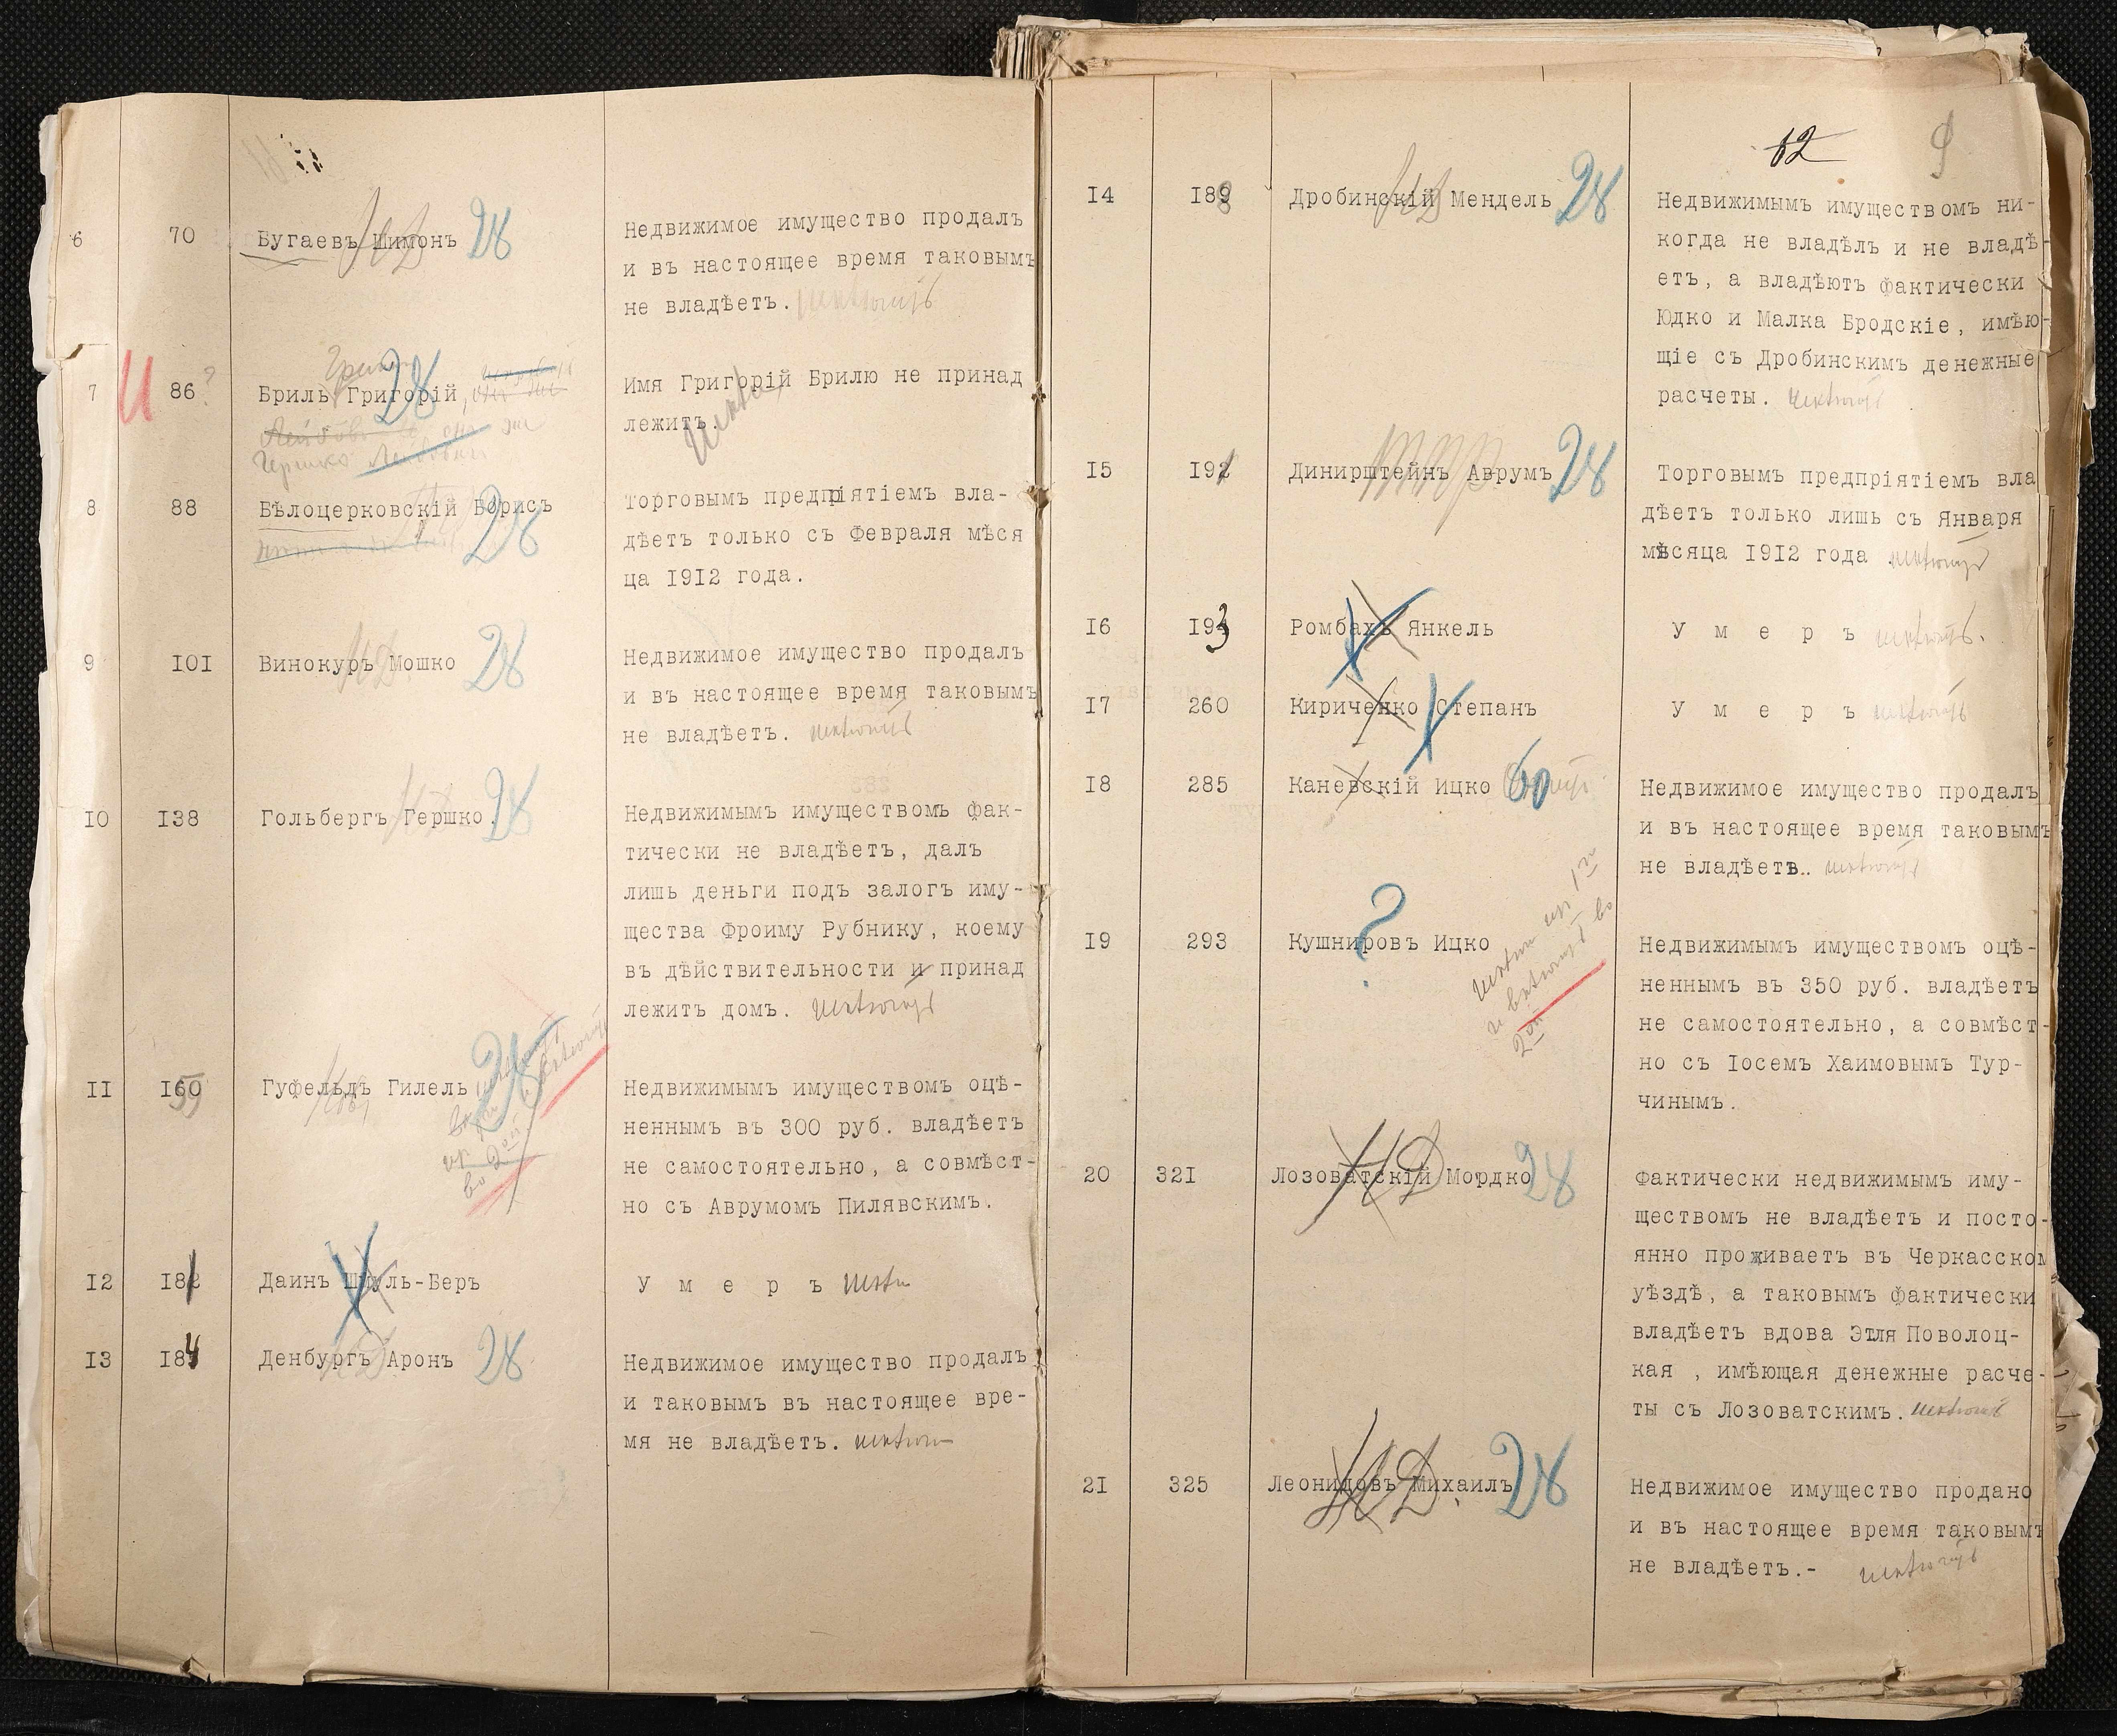 6 70 Бугаевъ Шимонъ 28 Недвижимое имущество продалъ
и въ настоящее время таковымъ
не владѣетъ.
7 И 86? Бриль Григорій, 28 Имя Григорій Брилю не принад
лежитъ.
8 88 Бѣлоцерковскій Борисъ 28 Торговымъ предпріятіемъ вла-
дѣетъ только съ Февраля мѣся
ца I9I2 года.
9 I0I Винокуръ Мошко 28 Недвижимое имущество продалъ
и въ настоящее время таковымъ
не владѣетъ. исключить
I0 I38 Гольбергъ Гершко. 28 Недвижимымъ имуществомъ фак-
тически не владѣетъ, далъ
лишь деньги подъ залогъ иму-
щества Фроиму Рубнику, коему
въ дѣйствительности и принад
лежит домъ. исключить
II I60 Гуфельдъ Гилель 28 Недвижимымъ имуществомъ оцѣ-
неннымъ въ 300 руб. владѣетъ
не самостоятельно, а совмѣст-
но съ Аврумомъ Пилявскимъ.
I2 I81 Даинъ Шмуль-Беръ У м е р ъ
I3 I84 Денбургъ Аронъ 28 Недвижимое имущество продалъ
и таковымъ въ настоящее вре-
мя не владѣетъ.
62 9
I4 I88 Дробинскій Мендель 28 Недвижимымъ имуществомъ ни-
когда не владѣлъ и не владѣ-
етъ, а владѣютъ фактически
Юдко и Малка Бродскіе, имѣю-
щіе съ Дробинскимъ денежные
расчеты. исключить
I5 I91 Динирштейнъ Аврумъ 28 Торговымъ предпріятіемъ вла
дѣетъ только лишь съ Января
мѣсяца I9I2 года исключить
I6 I93 Ромбахъ Янкель У м е р ъ исключить.
I7 260 Кириченко Степанъ У м е р ъ исключить
I8 285 Каневскій Ицко 60 Недвижимое имущество продалъ
и въ настоящее время таковымъ
не владѣетъ.. исключить
I9 293 Кушнировъ Ицко ? Недвижимымъ имуществомъ оцѣ-
неннымъ въ 350 руб. владѣетъ
не самостоятельно, а совмѣст-
но съ Іосемъ Хаимовымъ Тур-
чинымъ.
20 32I Лозоватскій Мордко 28 Фактически недвижимымъ иму-
ществомъ не владѣетъ и посто-
янно проживаетъ въ Черкасском
уѣздѣ, а таковымъ фактически
владѣетъ вдова Этля Поволоц-
кая , имѣющая денежные расче-
ты съ Лозоватскимъ. исключить
2I 325 Леонидовъ Михаилъ 28 Недвижимое имущество продано
и въ настоящее время таковымъ
не владѣетъ.- исключить